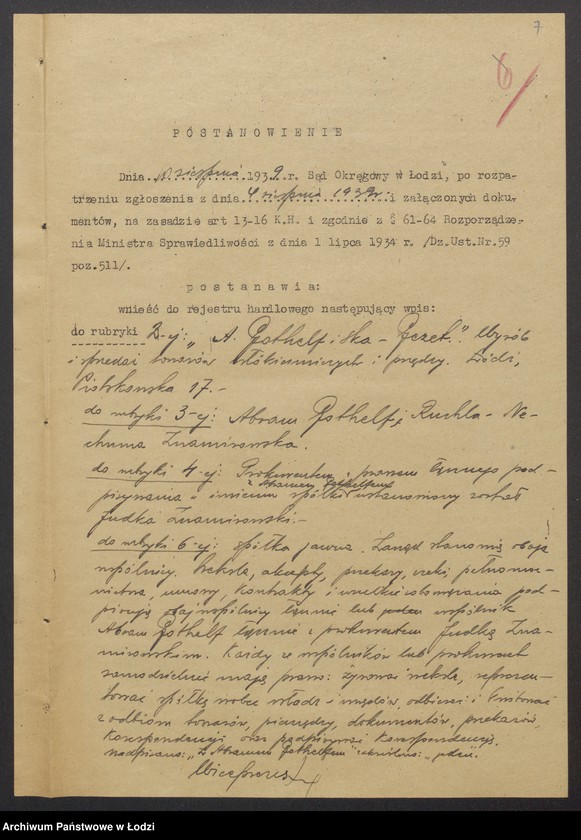 7
6
POSTANOWIENIE
Dnia 10 sierpnia 1939 r. Sąd Okręgowy w Łodzi, po rozpa-
trzeniu zgłoszenia z dnia 4 sierpnia 1939 r. i załączonych doku-
mentów, na zasadzie art 13-16 K.H. i zgodnie z § 61-64 Rozporządze-
nia Ministra Sprawiedliwości z dnia 1 lipca 1934 r. /Dz.Ust.Nr.59
poz.511/.
postanawia:
wnieść do rejestru handlowego następujący wpis:
do rubryki 2-ej: „A. Gothelf i S-ka - . Wyrób
i sprzedaż towarów włókienniczych i przędzy. Łódź,
Piotrkowska 17.-
do rubryki 3-ej: Abram Gothelf i Ruchla - Ne-
chuma Znamirowska.
do rubryki 4-ej: Prokurentem z prawem łącznego pod-
z Abramem Gothelfem
pisywania w imieniu spółki ustanowiony został
Judka Znamirowski.-
do rubryki 6-ej: spółka jawna. Zarząd stanowią obaj
wspólnicy. Weksle, akcepty, przekazy, czeki, pełnomoc-
nictwa, umowy, kontrakty i wszelkie zobowiązania pod-
pisują obaj wspólnicy łącznie lub jeden wspólnik
Abram Gothelf łącznie z prokurentem Judką Zna-
mirowskim. Każdy ze wspólników lub prokurent
samodzielnie mają prawo: żyrować weksle, reprezen-
tować spółkę wobec władz i urzędów, odbierać i kwitować
z odbioru towarów, pieniędzy, dokumentów, przekazów,
korespondencji oraz podpisywać korespondencję.
nadpisano: „z Abramem Gothelfem" skreślono: „jeden".
Wiceprezes
Archiwum Państwowe w Łodzi